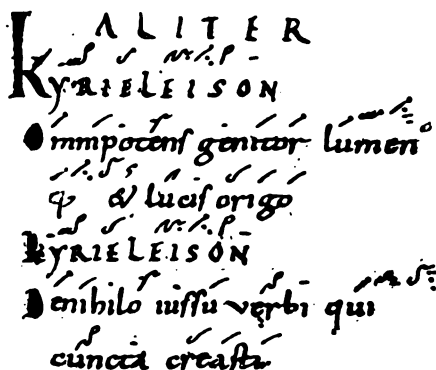 ALITER
KYRIELEISON
Omnipotens genitor lumen
qƷ & lucis origo
KYRIELEISON
Denihilo iussu verbi qui
cuncta creasti